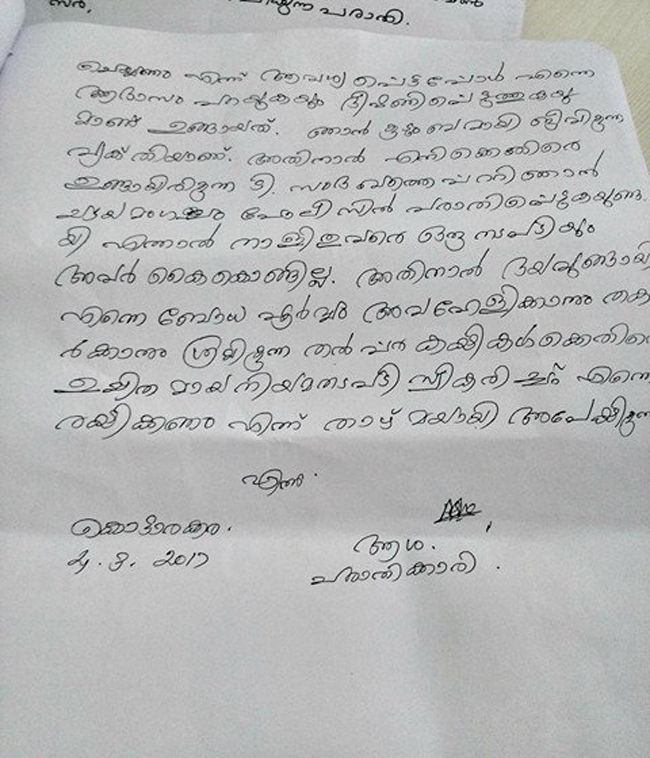 സർ,
പരാതി.
ചെയ്യണം എന്ന് ആവശ്യപ്പെട്ടപ്പോൾ എന്നെ
പറയുകയും ഭീഷണിപ്പെടുത്തുകയു
മാണ് ഉണ്ടായത്. ഞാൻ കുടുംബമായി ജീവിക്കുന്ന
വ്യക്തിയാണ്. അതിനാൽ എനിക്കെതിരെ
ഉണ്ടായിരിക്കുന്ന ടി. സംഭവത്തെപ്പറ്റി ഞാൻ
പോലീസിൽ പരാതിപ്പെടുകയുണ്ടാ
യി എന്നാൽ നാളിതുവരെ ഒരു നടപടിയും
അവർ കൈകൊണ്ടില്ല. അതിനാൽ ദയവുണ്ടായി
എന്നെ ബോധപൂർവ്വം അവഹേളിക്കാനും തക
ർക്കാനും ശ്രമിക്കുന്ന തൽപ്പര കക്ഷികൾക്കെതിരെ
ഉചിതമായ നിയമനടപടി സ്വീകരിച്ച് എന്നെ
രക്ഷിക്കണം എന്ന് താഴ്മയായി അപേക്ഷിക്കുന്നു
എന്ന്
കൊട്ടാരക്കര.
4. 3. 2017
ആശ.
പരാതിക്കാരി.